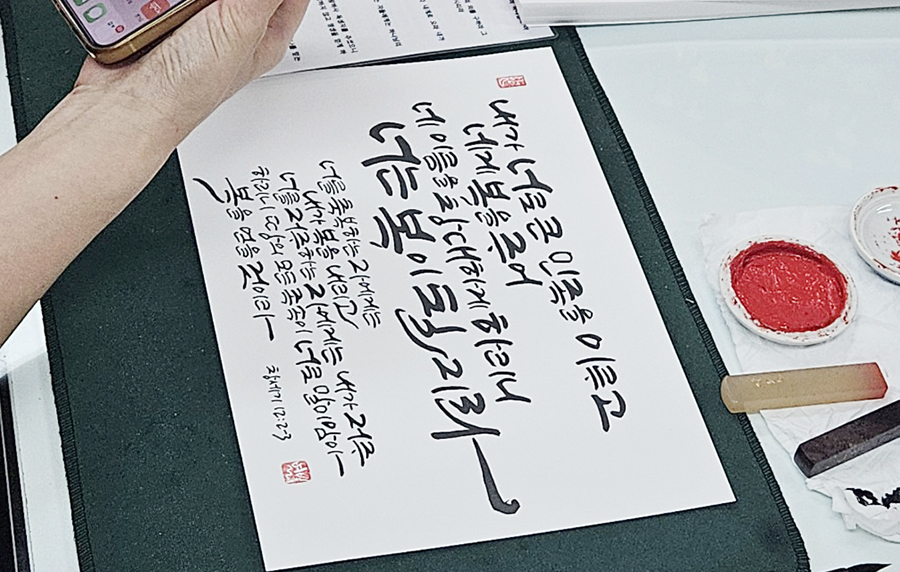 내가 너로 큰 민족을 이루고
네게 복을 주어
네 이름을 창대하게 하리니
너는 복이 될지라
너를 축복하는 자에게는
내가 복을 내리고
너를 저주하는 자에게는 내가 저주
하리니 땅의 모든 족속이 너로 말미암아
복을 얻을 것이라
창세기 12:2-3